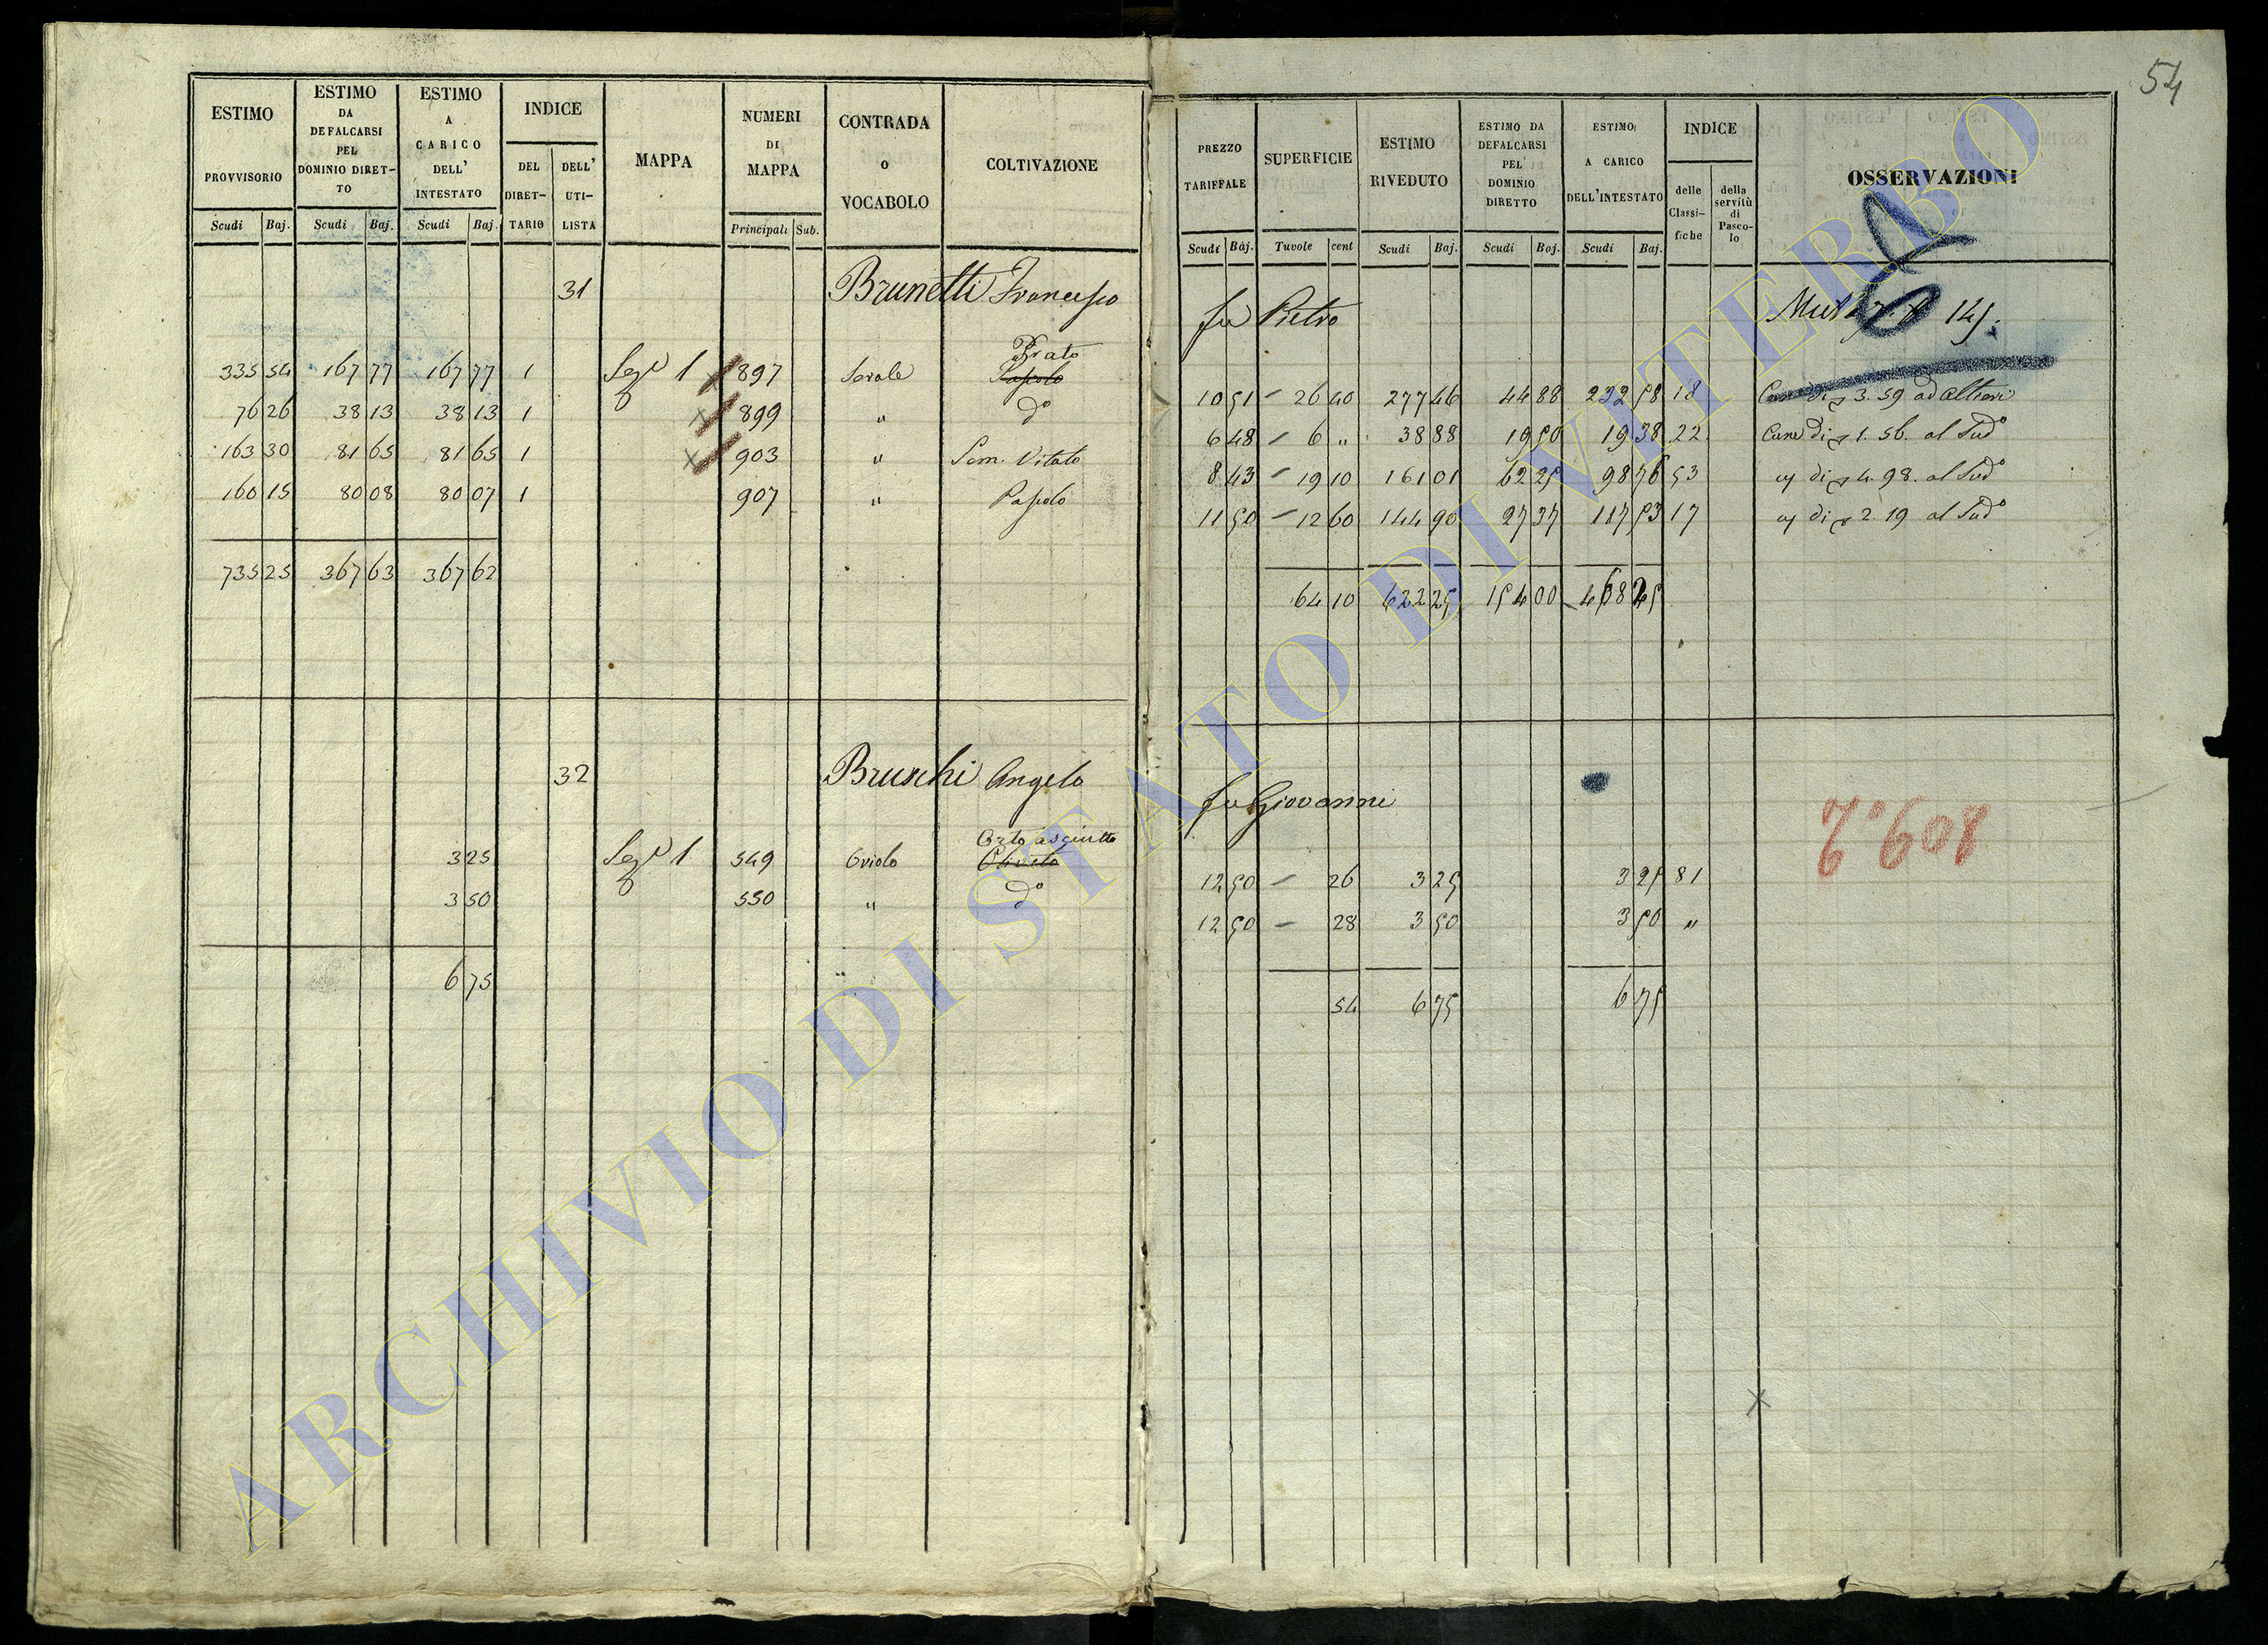 54
ESTIMO PROVVISORIO
ESTIMO DA DEFALCARSI PEL DOMINIO DIRETTO
ESTIMO A CARICO DELL' INTESTATO
INDICE
DEL DIRETTARIO
DELL' UTILISTA
MAPPA
NUMERI DI MAPPA
CONTRADA o VOCABOLO
COLTIVAZIONE
Scudi Baj. Scudi Baj. Scudi Baj. Principali Sub.
31 Brunetti Francesco
Prato
335 54 167 77 167 77 1 Sez.e 1 897 Serale Pascolo
76 26 38 13 38 13 1 899 " do
163 30 81 65 81 65 1 903 " Sem. Vitato
160 15 80 08 80 07 1 907 " Pascolo
735 25 367 63 367 62
32 Bruschi Angelo
Orto asciutto
3 25 Sez.e 1 549 Oriolo Oliveto
3 50 550 " do
6 75
PREZZO TARIFFALE
SUPERFICIE
ESTIMO RIVEDUTO
ESTIMO DA DEFALCARSI PEL DOMINIO DIRETTO
ESTIMO A CARICO DELL'INTESTATO
INDICE
delle Classifiche
della servitù di Pascolo
OSSERVAZIONI
Scudi Baj. Tavole cent Scudi Baj. Scudi Baj. Scudi Baj.
fu Pietro
10 51 – 26 40 277 46 44 88 232 58 18 Can di 3.59 ad Altieri
6 48 – 6 " 38 88 19 50 19 38 22 Cane di 1.56. al Sud.o
8 43 – 19 10 161 01 62 25 98 76 53 di 4.98. al Sud.o
11 50 – 12 60 144 90 27 37 117 53 17 di 2.19 al Sud.o
64 10 622 25 154 00 468 25
fu Giovanni
12 50 – 26 3 25 3 25 81
12 50 – 28 3 50 3 50 "
54 6 75 6 75
ARCHIVIO DI STATO DI VITERBO